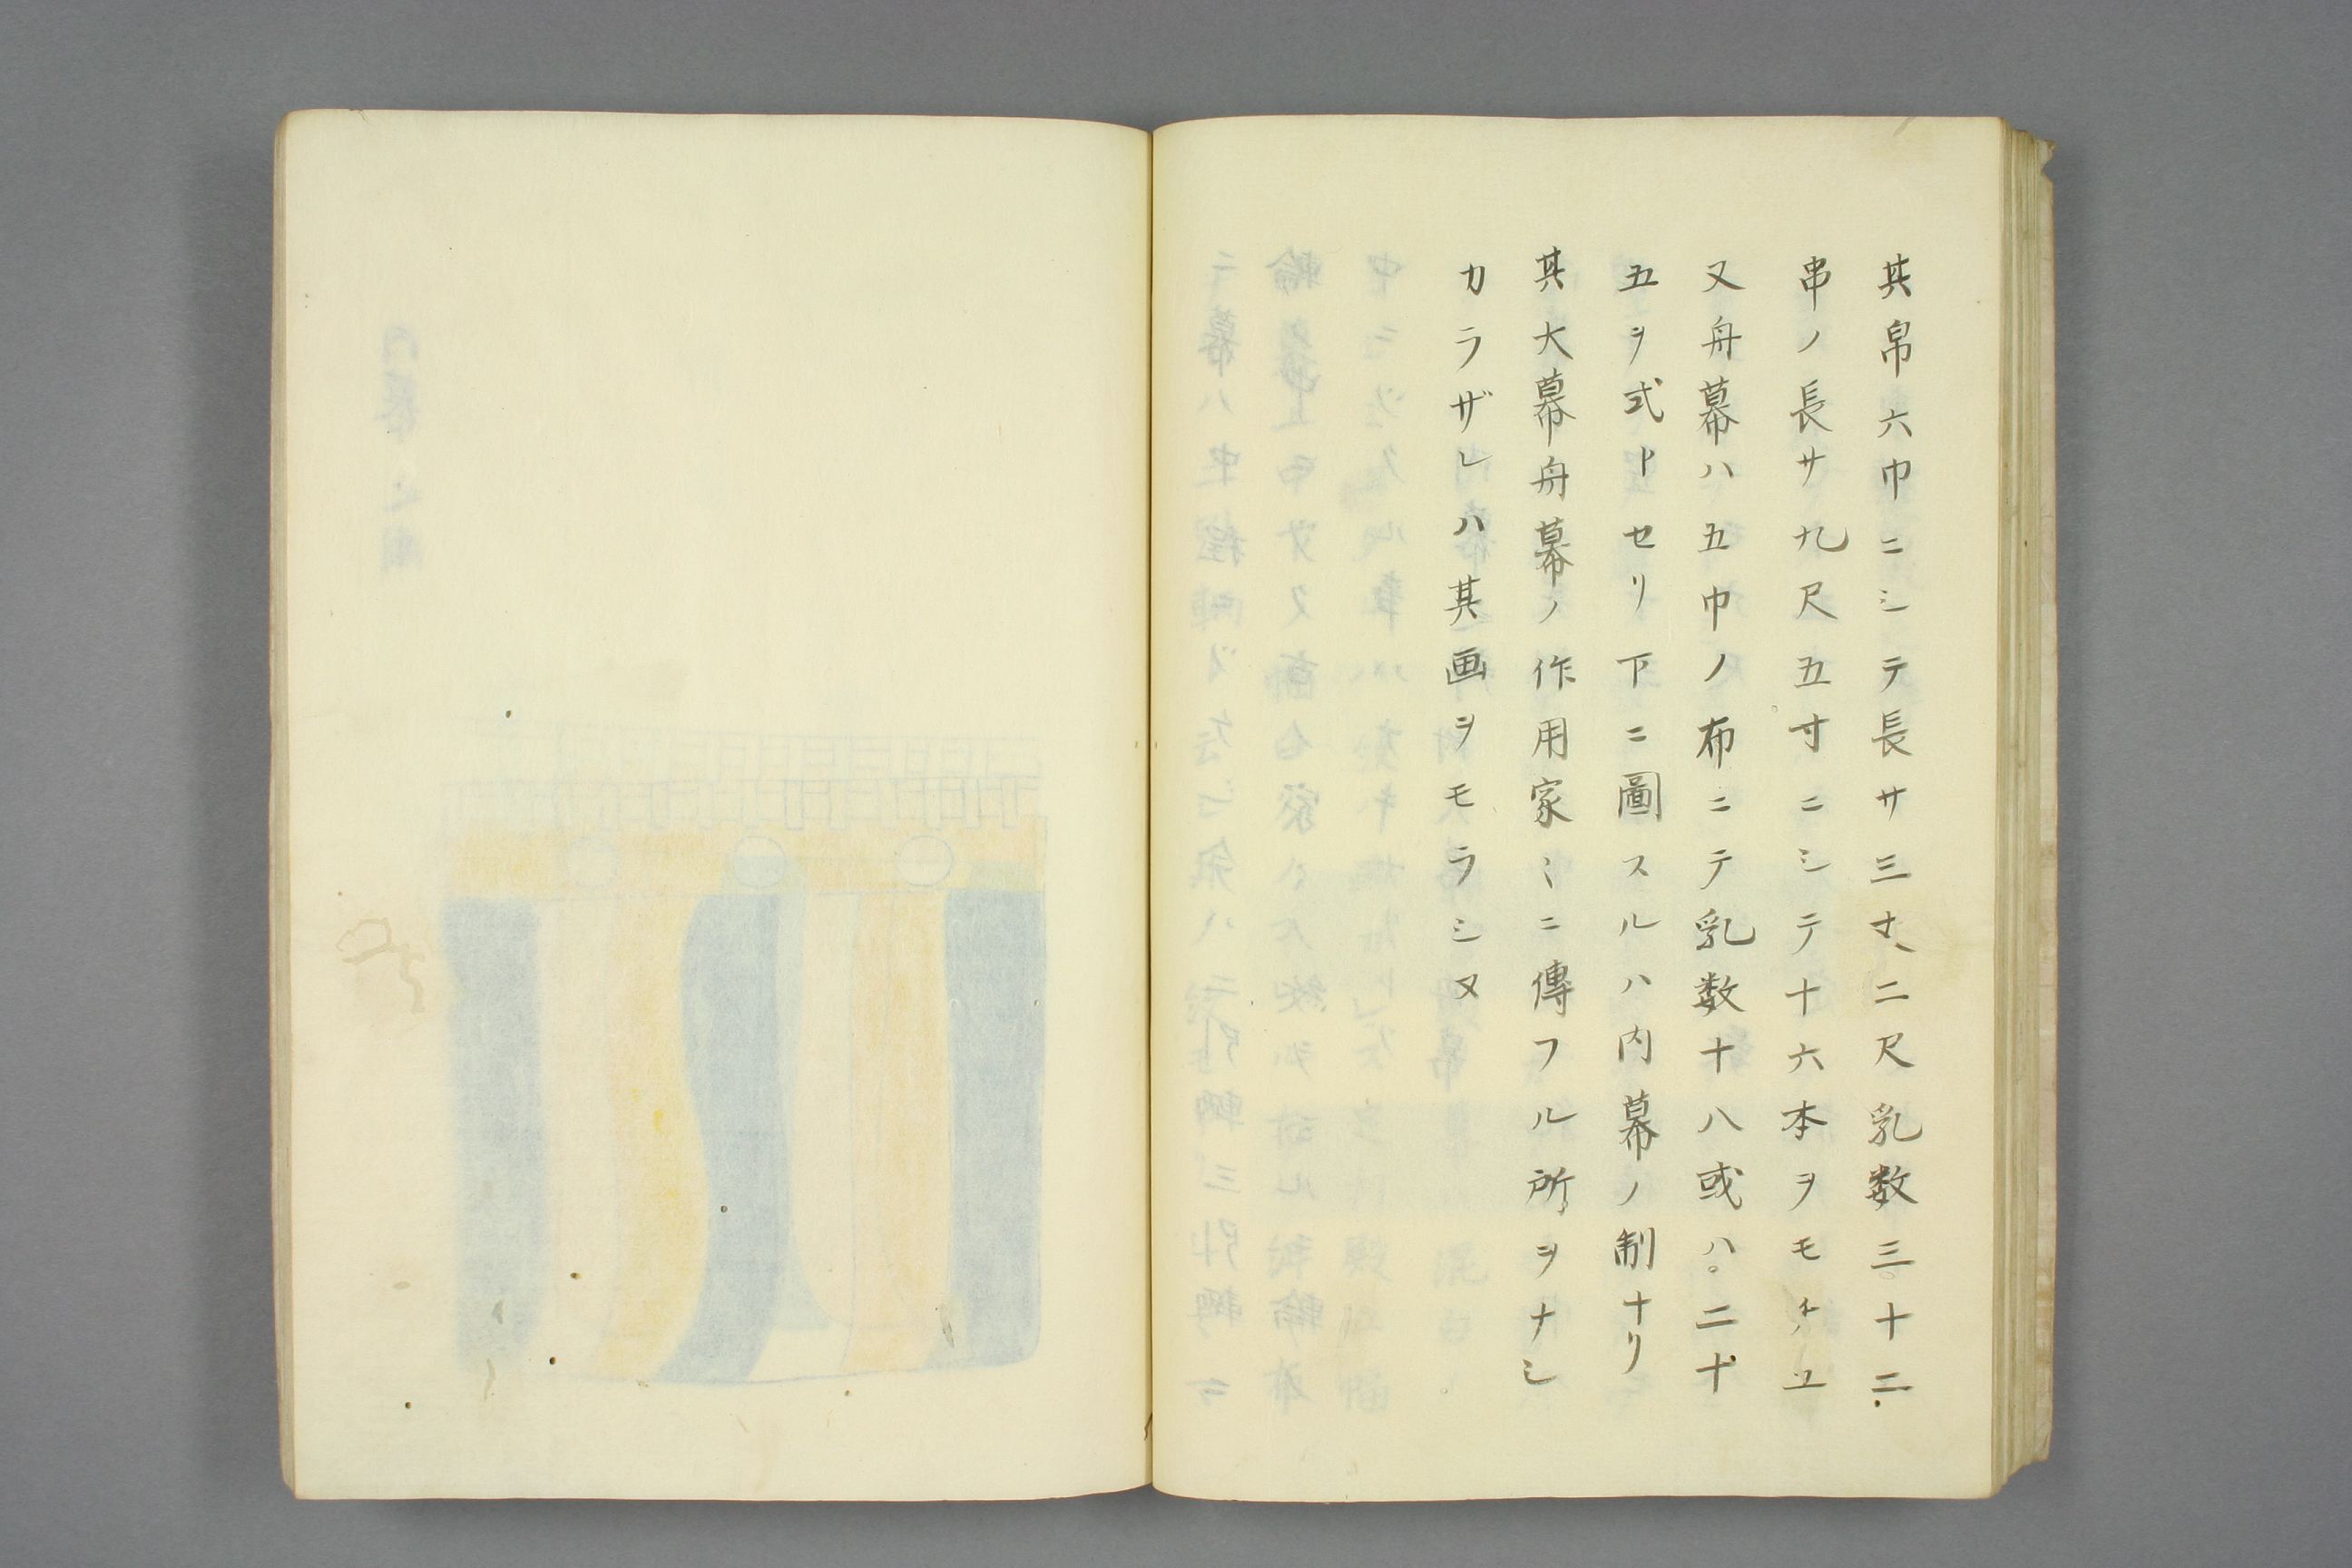 其帛六巾ニシテ長サ三丈二尺乳数三十二
串ノ長サ九尺五寸ニシテ十六本ヲモチユ
又舟幕ハ五巾ノ布ニテ乳数十八或ハ二十
五ヲ式トセリ下ニ圖スルハ内幕ノ制ナリ
其大幕舟幕ノ作用家〻ニ傳フル所ヲナシ
カラザレハ其画ヲモラシヌ